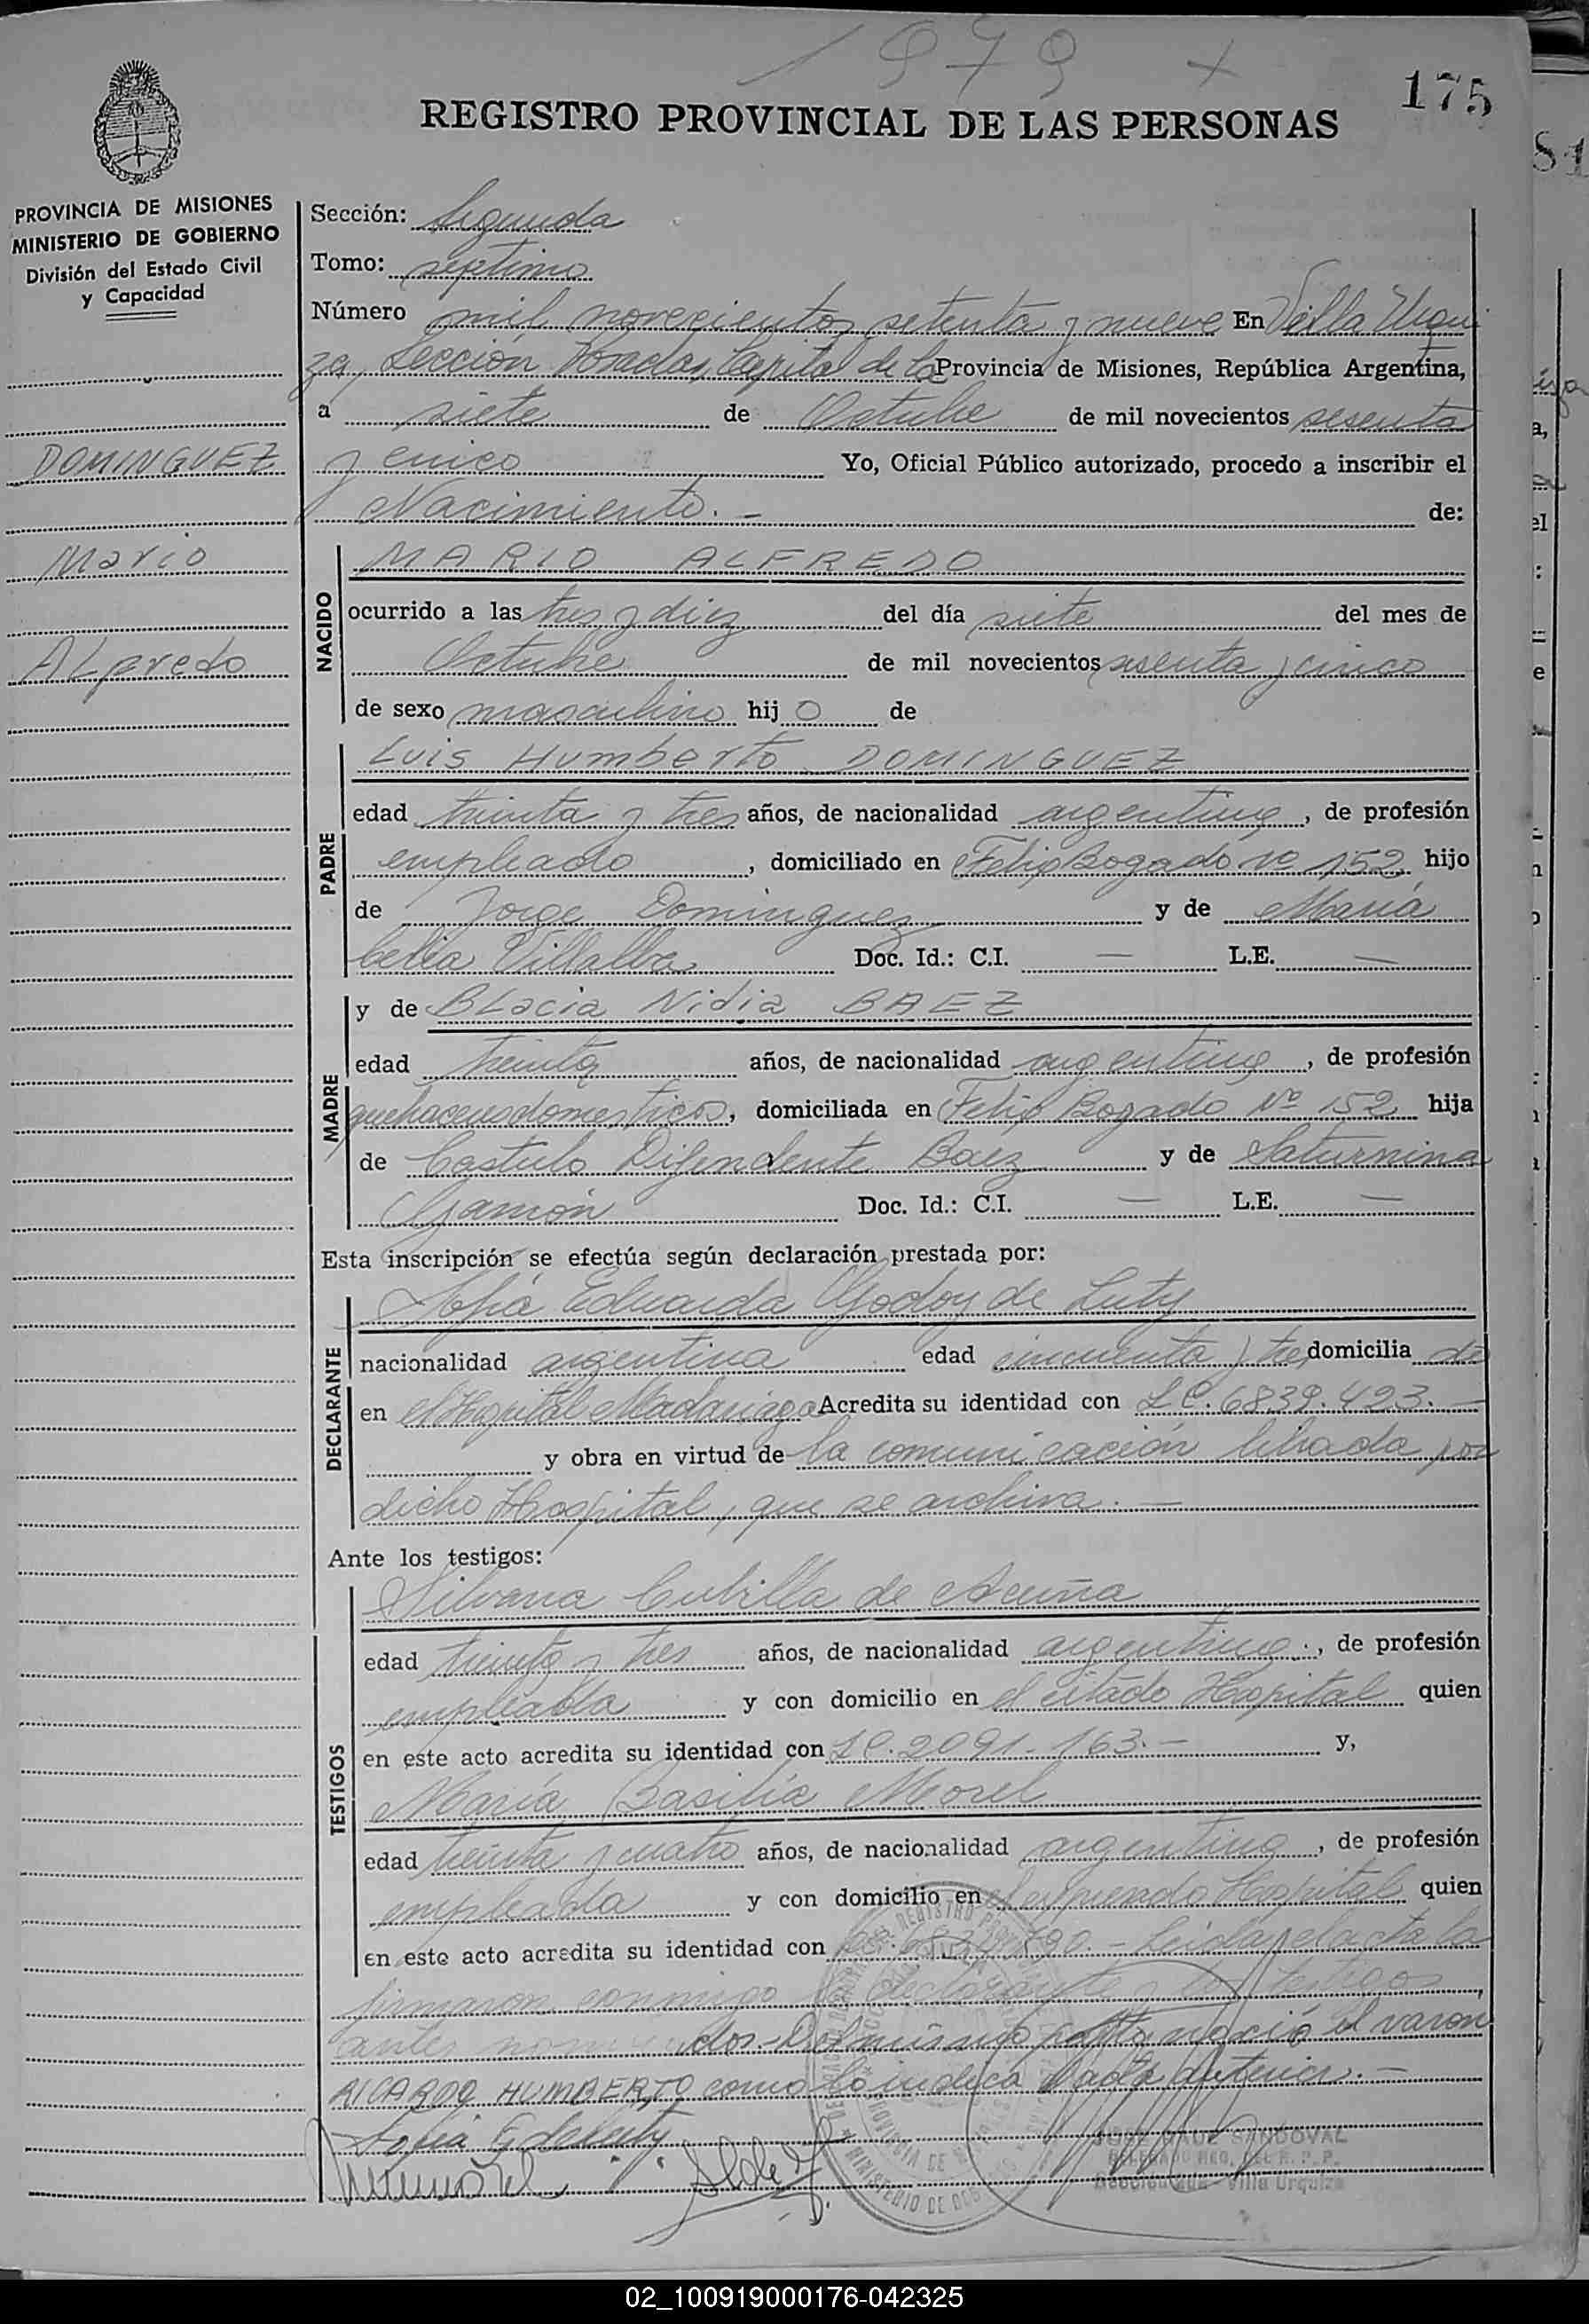 1979 +
175
REGISTRO PROVINCIAL DE LAS PERSONAS
PROVINCIA DE MISIONES
MINISTERIO DE GOBIERNO
División del Estado Civil
y Capacidad
DOMINGUEZ
Mario
ALfredo
Sección: Segunda
Tomo: septimo
Número mil novecientos setenta y nueve En Villa Urqui
za, Sección Posadas, Capital de la Provincia de Misiones, República Argentina,
a siete de Octubre de mil novecientos sesenta
y cinco Yo, Oficial Público autorizado, procedo a inscribir el
Nacimiento. - de:
NACIDO
MARIO ALFREDO
ocurrido a las tres y diez del día siete del mes de
Octubre de mil novecientos sesenta y cinco
de sexo masculino hijo de
PADRE
Luis Humberto DOMINGUEZ
edad treinta y tres años, de nacionalidad argentina, de profesión
empleado, domiciliado en Felix Bogado Nº 152, hijo
de Jorge Dominguez y de María
Celia Villalba Doc. Id.: C.I. — L.E. —
MADRE
y de BLacia Nidia BAEZ
edad treinta años, de nacionalidad argentina, de profesión
quehaceres domesticos, domiciliada en Felix Bogado Nº 152 hija
de Castulo Difendente Baez y de Saturnina
Gamon Doc. Id.: C.I. — L.E. —
Esta inscripción se efectúa según declaración prestada por:
DECLARANTE
Sofia Eduarda Godoy de Luty
nacionalidad argentina edad cincuenta y tres domicilia da
en el Hospital Madariaga Acredita su identidad con L.C. 6839.423. —
y obra en virtud de la comunicación librada por
dicho Hospital, que se archiva. —
Ante los testigos:
TESTIGOS
Silvana Cubilla de Acuña
edad treinta y tres años, de nacionalidad argentina, de profesión
empleada y con domicilio en el citado Hospital quien
en este acto acredita su identidad con L.C. 2091.163. — y,
María Basilia Morel
edad treinta y cuatro años, de nacionalidad argentina, de profesión
empleada y con domicilio en el expresado Hospital quien
en este acto acredita su identidad con - Leida el acta la
firmaron conmigo la declarante y los testigos
antes nominados. - Del mismo parto nació el varon
RICARDO HUMBERTO como lo indica el acta anterior. —
Sofia G de Luty
JOSE RAUL SANDOVAL
DELEGADO REG. DEL R. P. P.
Villa Urquiza
02_100919000176-042325